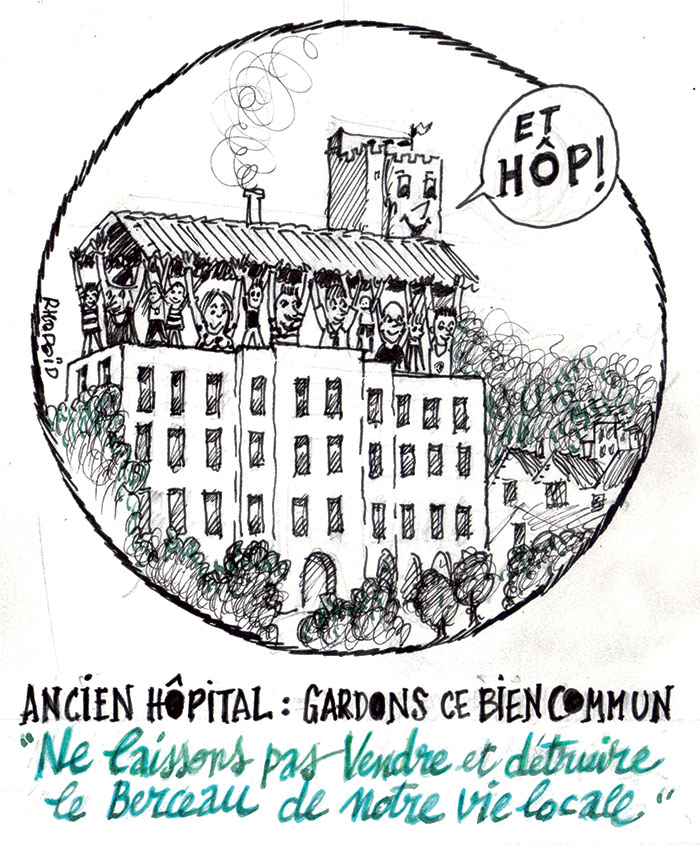 ET
HÔP!
ANCIEN HÔPITAL : GARDONS CE BIEN COMMUN
"Ne laissons pas Vendre et détruire
le Berceau de notre vie locale"